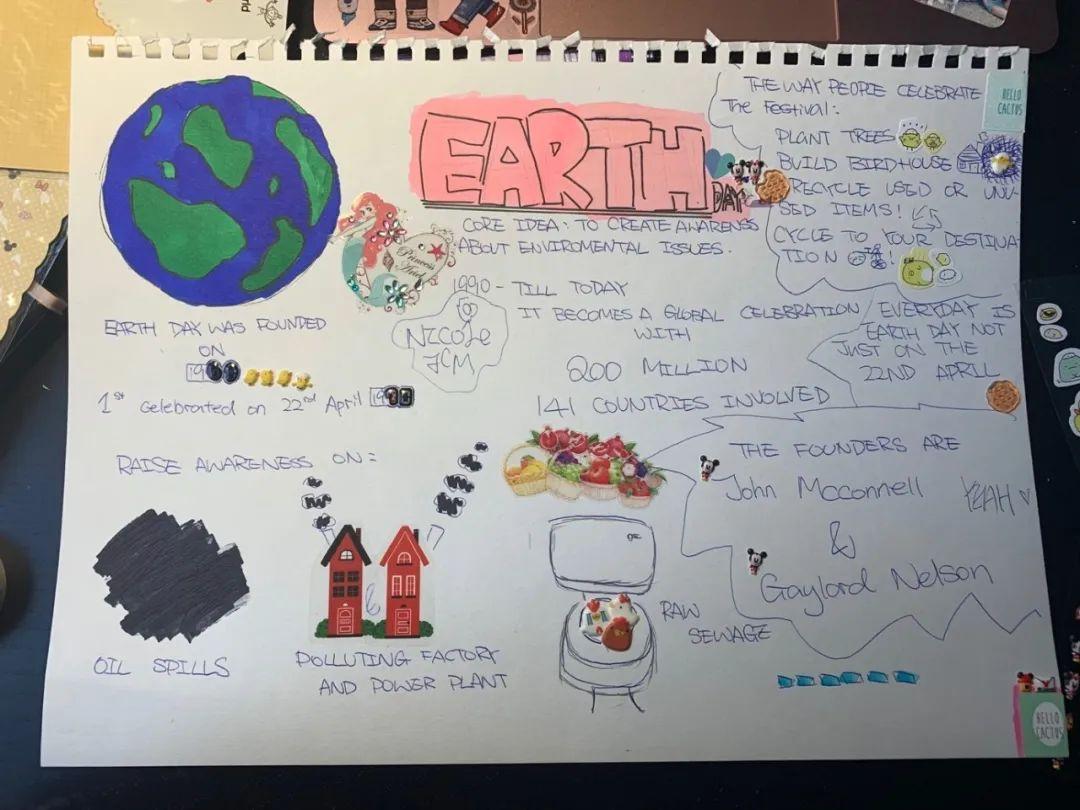 EARTH
DAY
CORE IDEA: TO CREATE AWARENSS
ABOUT ENVIROMENTAL ISSUES.
THE WAY PEOPLE CELEBRATE
The Festival:
PLANT TREES
BUILD BIRDHOUSE
RECYCLE USED OR UNU-
SED ITEMS!
CYCLE TO YOUR DESTINA-
TION !
HELLO
CACTUS
Princess
Ariel
1990 - TILL TODAY
IT BECOMES A GLOBAL CELEBRATION
WITH
200 MILLION
141 COUNTRIES INVOLVED
EVERYDAY IS
EARTH DAY NOT
JUST ON THE
22ND APRIL
EARTH DAY WAS FOUNDED
ON
19
1st Celebrated on 22nd April 19
RAISE AWARENESS ON:
OIL SPILLS
&
POLLUTING FACTORY
AND POWER PLANT
RAW
SEWAGE
THE FOUNDERS ARE
John Mcconnell
YEAH
&
Gaylord Nelson
HELLO
CACTUS